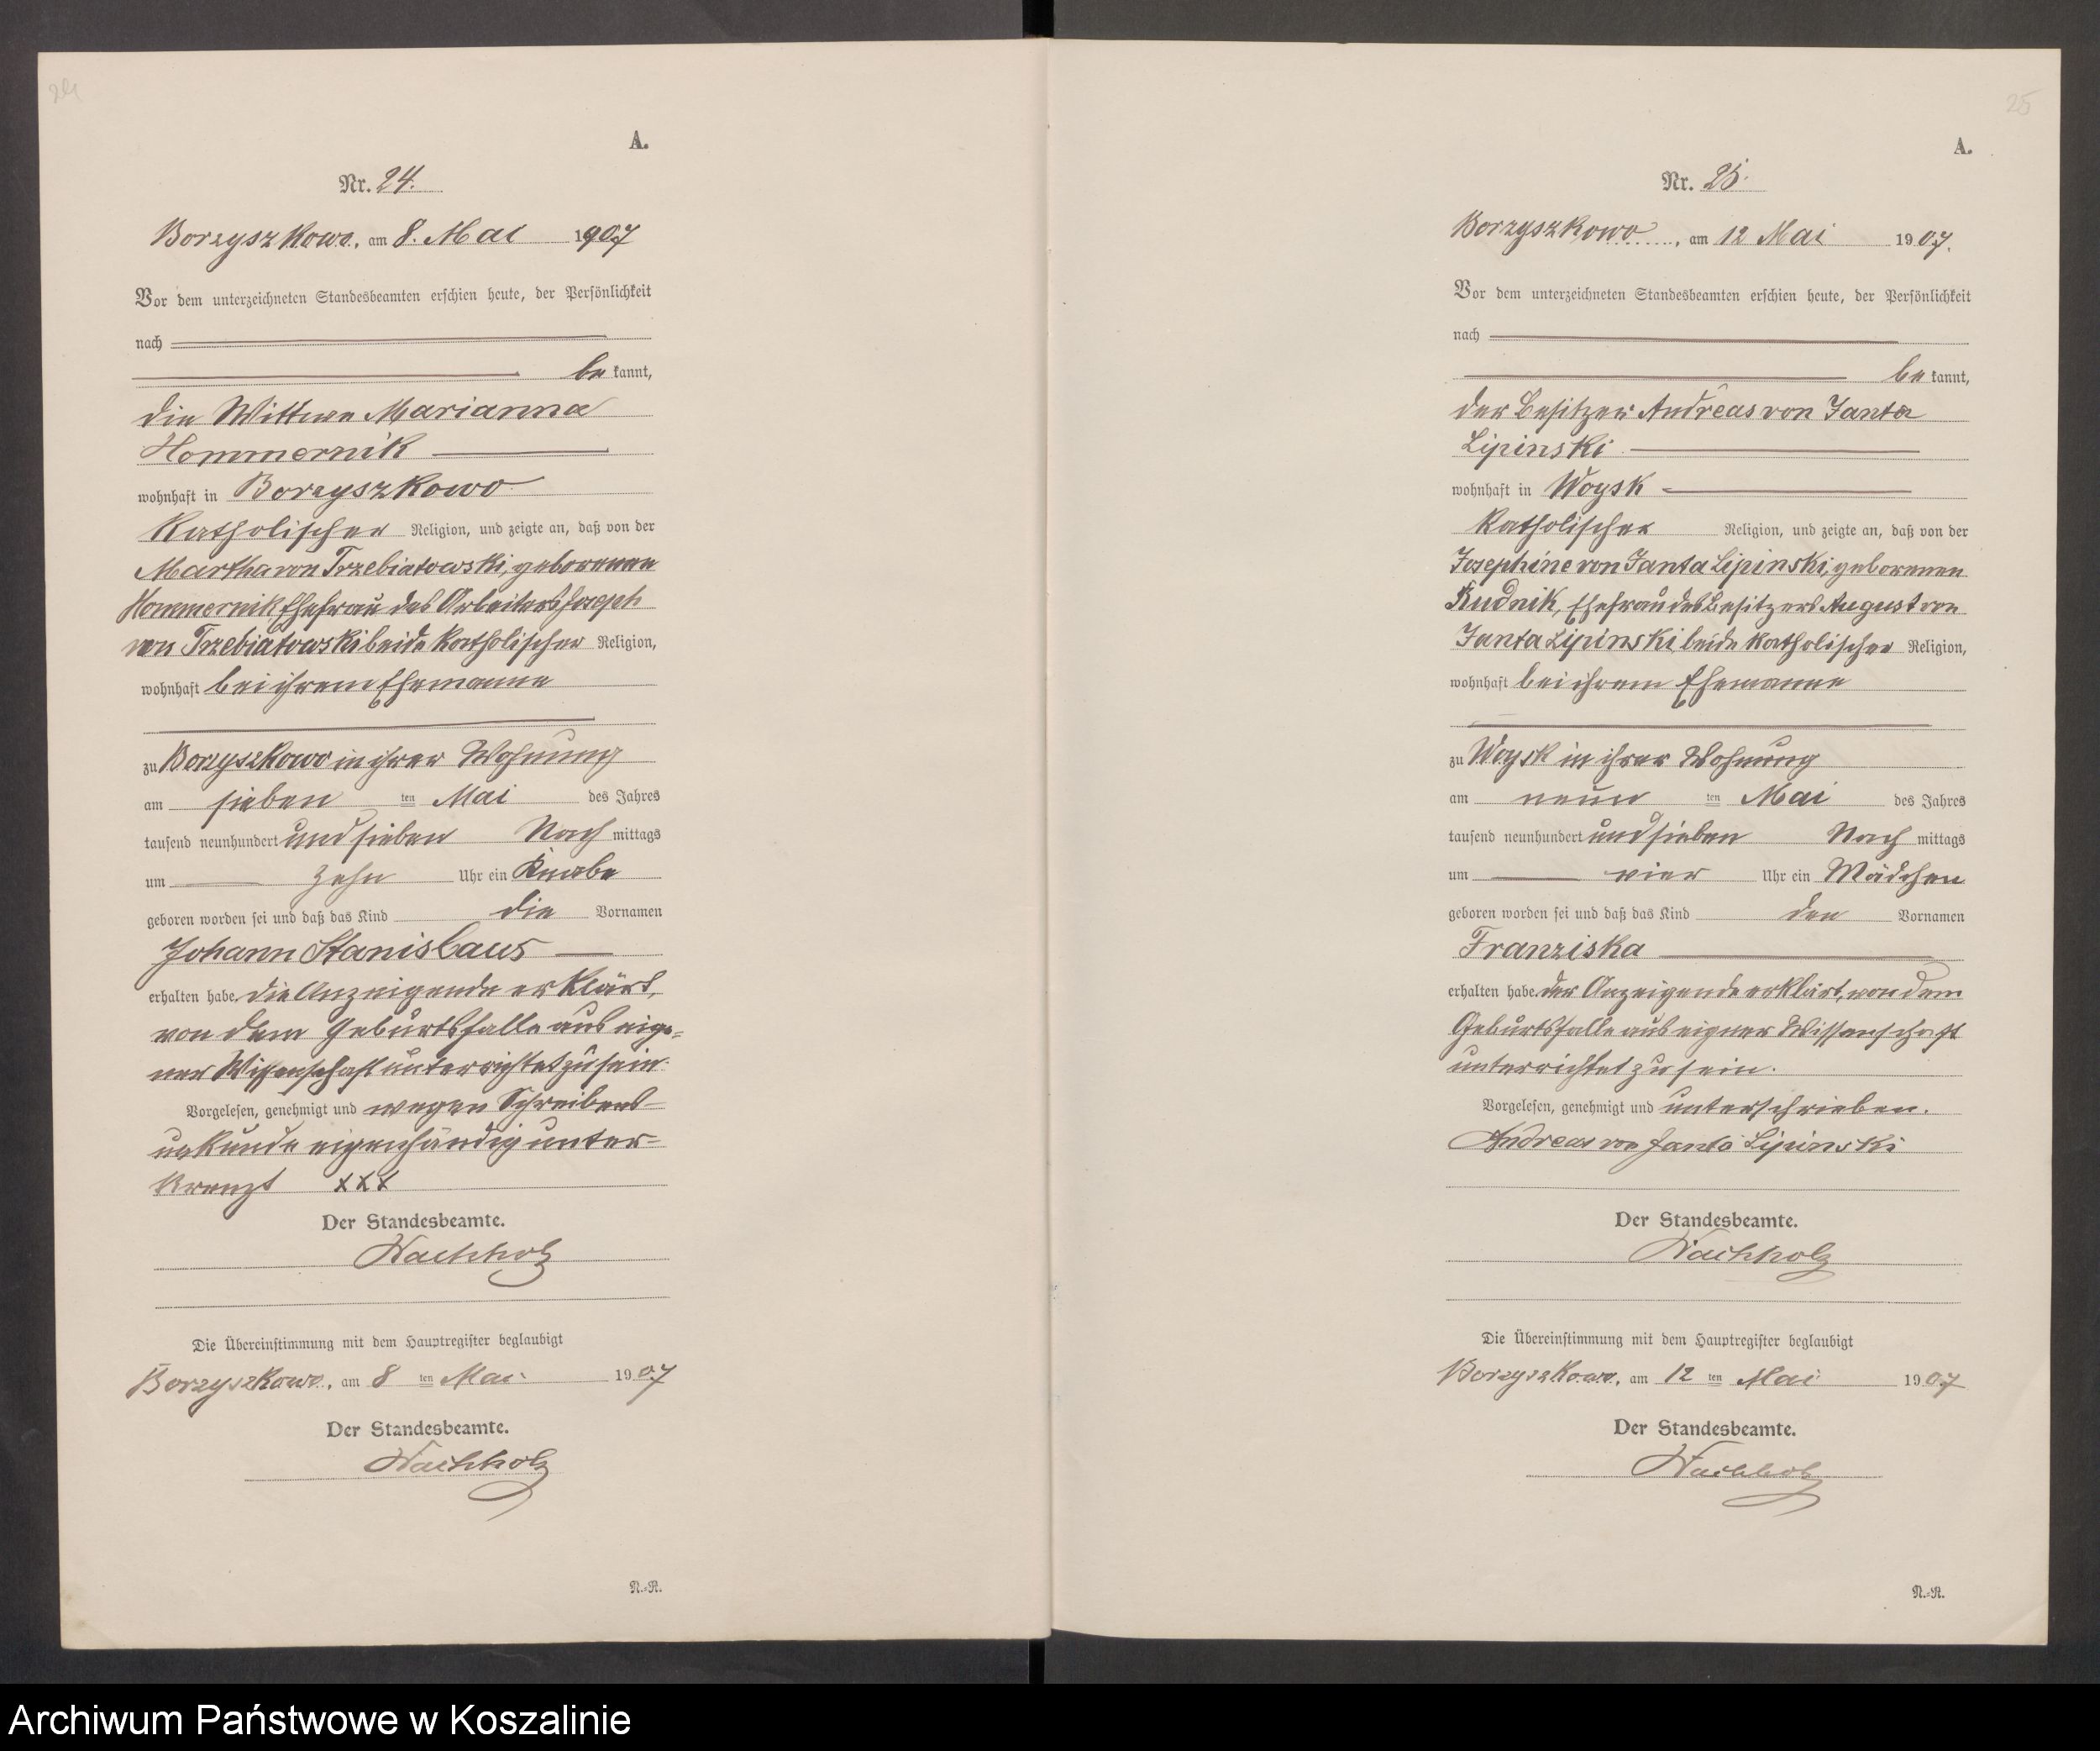 24
A.
Nr. 24.
Borzyszkowo, am 8. Mai 1907
Vor dem unterzeichneten Standesbeamten erschien heute, der Persönlichkeit
nach
be kannt,
die Wittwe Marianna
Hommernik
wohnhaft in Borzyszkowo
katholischer Religion, und zeigte an, daß von der
Martha von Trzebiatowski, geborenen
Hommernik Ehefrau des Arbeiters Joseph
von Trzebiatowski beide katholischer Religion,
wohnhaft bei ihrem Ehemanne
zu Borzyszkowo in ihrer Wohnung
am sieben ten Mai des Jahres
tausend neunhundert und sieben Nach mittags
um zehn Uhr ein Knabe
geboren worden sei und daß das Kind die Vornamen
Johann Stanislaus
erhalten habe. die Anzeigende erklärt,
von dem Geburtsfalle aus eige-
ner Wissenschaft unterrichtet zu sein.
Vorgelesen, genehmigt und wegen Schreibens-
unkunde eigenhändig unter-
kreuzt xxx
Der Standesbeamte.
Wachholz
Die Übereinstimmung mit dem Hauptregister beglaubigt
Borzyszkowo, am 8 ten Mai 1907
Der Standesbeamte.
Wachholz
N.-R.
25
A.
Nr. 25.
Borzyszkowo, am 12 Mai 1907.
Vor dem unterzeichneten Standesbeamten erschien heute, der Persönlichkeit
nach
be kannt,
der Besitzer Andreas von Janta
Lipinski
wohnhaft in Woysk
katholischer Religion, und zeigte an, daß von der
Josephine von Janta Lipinski, geborenen
Rudnik, Ehefrau des Besitzers August von
Janta Lipinski, beide katholischer Religion,
wohnhaft bei ihrem Ehemanne
zu Woysk in ihrer Wohnung
am neun ten Mai des Jahres
tausend neunhundert und sieben Nach mittags
um vier Uhr ein Mädchen
geboren worden sei und daß das Kind den Vornamen
Franziska
erhalten habe. der Anzeigende erklärt, von dem
Geburtsfalle aus eigner Wissenschaft
unterrichtet zu sein.
Vorgelesen, genehmigt und unterschrieben.
Andreas von Janta Lipinski
Der Standesbeamte.
Wachholz
Die Übereinstimmung mit dem Hauptregister beglaubigt
Borzyszkowo, am 12 ten Mai 1907
Der Standesbeamte.
Wachholz
N.-R.
Archiwum Państwowe w Koszalinie